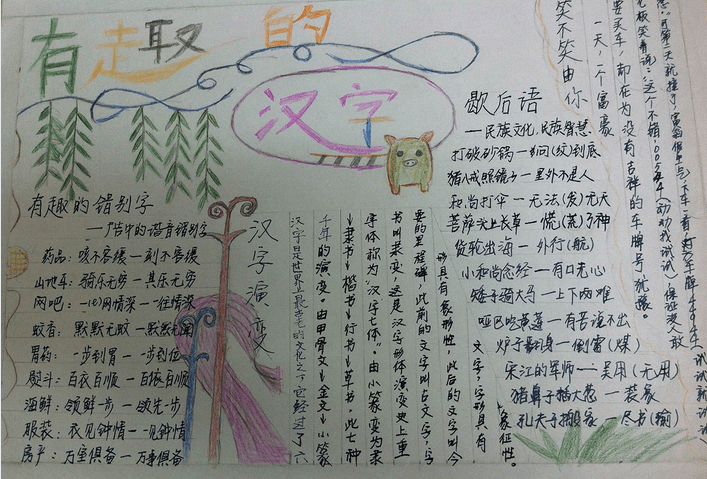 有趣的
汉字
有趣的错别字
—广告中的谐音错别字
药品：咳不容缓—刻不容缓
山地车：骑乐无穷—其乐无穷
网吧：一(e)网情深—往情深
蚊香：默默无蚊—默默无闻
胃药：一步到胃—一步到位
熨斗：百衣百顺—百依百顺
海鲜：领鲜一步—领先一步
服装：衣见钟情—一见钟情
房产：万室俱备—万事俱备
汉字演变
汉字是世界上最古老的文化之一，它经过了六
千年的演变。由甲骨文→金文→小篆
→隶书→楷书→行书→草书，此七种
字体称为"汉字七体"。由小篆变为隶
书叫隶变。这是汉字形体演变史上重
要的里程碑，此前的文字叫古文字，字
形具有象形性，此后的文字叫今
文字，字形具有
象征性。
歇后语
—民族文化，民族智慧
打破砂锅—问(纹)到底
猪八戒照镜子—里外不是人
和尚打伞—无法(发)无天
菩萨头上长草—慌(荒)了神
货轮出海—外行(航)
小和尚念经—有口无心
矮子骑大马—上下两难
哑巴吃黄莲—有苦说不出
炉子翻身—倒霉(煤)
宋江的军师—吴用(无用)
猪鼻子插大葱—装象
孔夫子搬家—尽书(输)
笑不笑由你
一天，一个富豪
要买车，却在为没有吉祥的车牌号犹豫。
老板笑着说：这个不错：00544(动动我试试)，保证没人敢